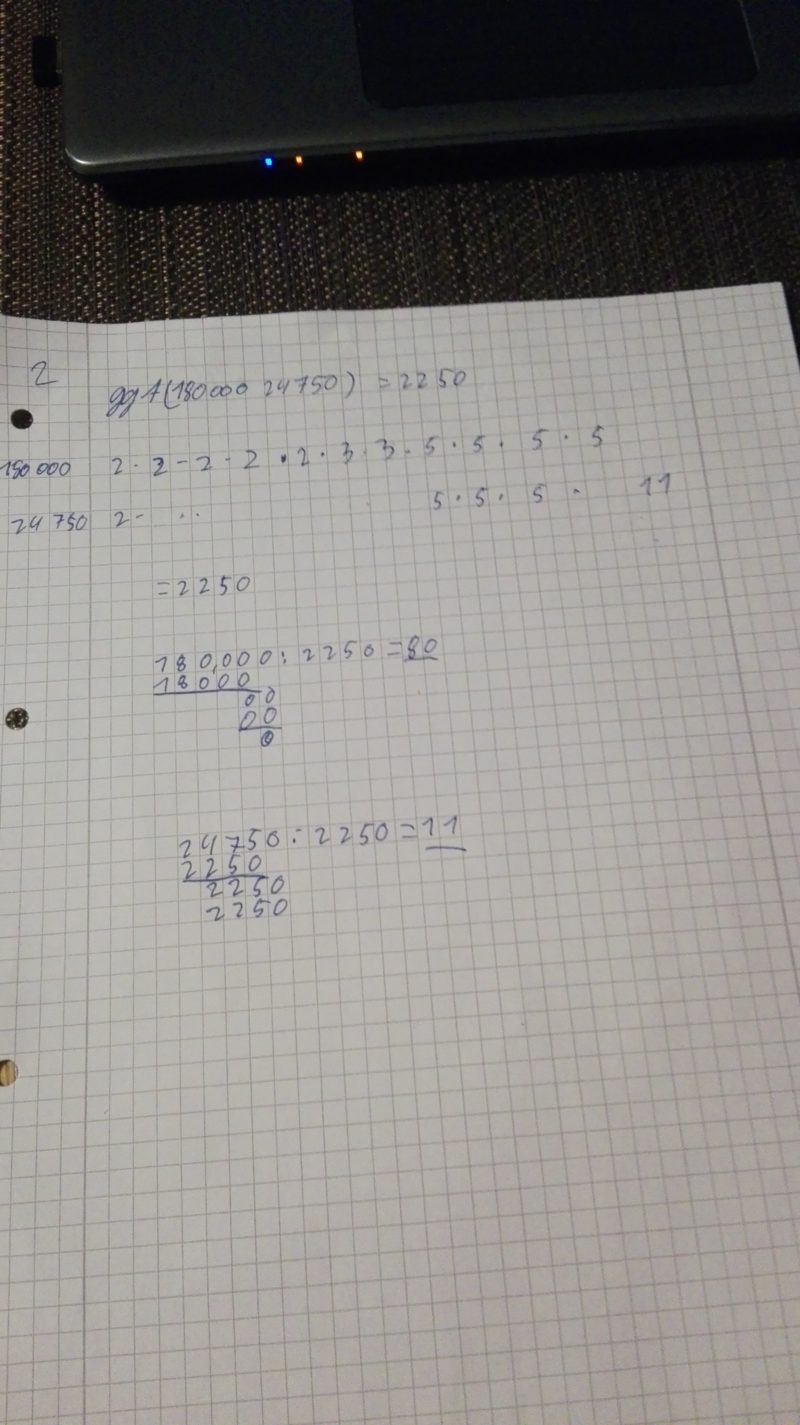 2
ggT(180000 24750) = 2250
180000 2 · 2 - 2 · 2 · 2 · 3 · 3 · 5 · 5 · 5 · 5
24 750 2 - .. 5 · 5 · 5 · 11
= 2250
180,000 : 2250 = 80
18000
00
00
0
24750 : 2250 = 11
2250
2250
2250